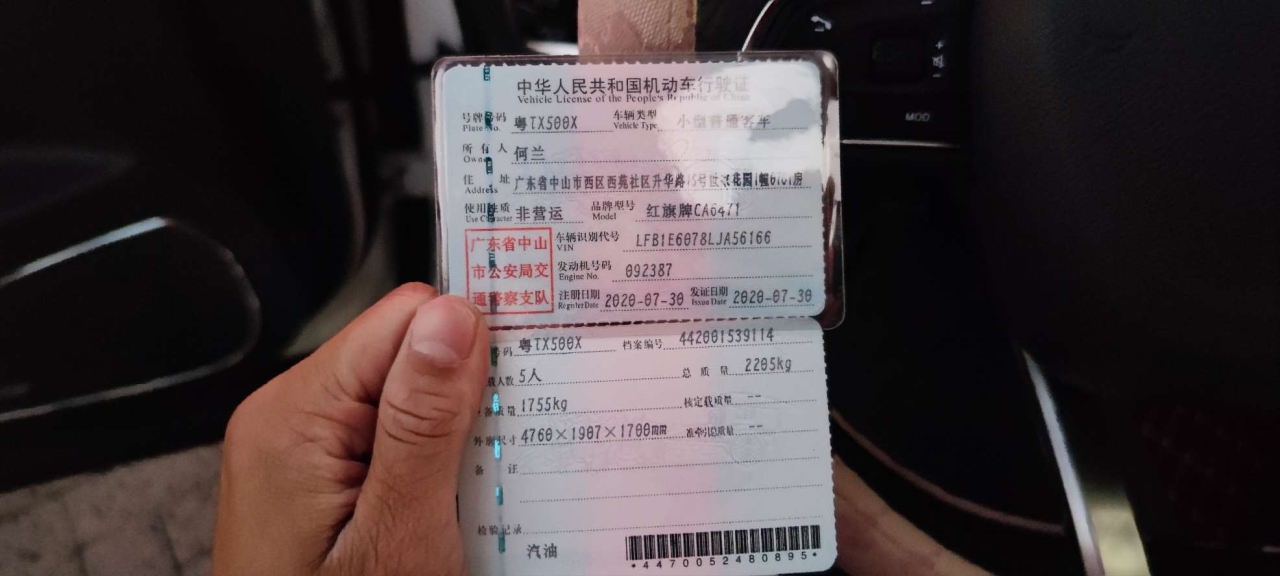 中华人民共和国机动车行驶证
Vehicle License of the People's Republic of China
号牌号码 粤TX500X 车辆类型 小型普通客车
Plate No. Vehicle Type
所有人 何兰
Owner
住址 广东省中山市西区西苑社区升华路15号世 花园1幢 房
Address
使用性质 非营运 品牌型号 红旗牌CA6471
Use Character Model
广东省中山
市公安局交
通警察支队
车辆识别代号 LFB1E6078LJA56166
VIN
发动机号码 092387
Engine No.
注册日期 2020-07-30 发证日期 2020-07-30
Register Date Issue Date
号码 粤TX500X 档案编号 442001539114
载人数 5人 总质量 2205kg
备质量 1755kg 核定载质量 --
外廓尺寸 4760×1907×1700mm 准牵引总质量 --
备注
检验记录
汽油
*4470052480895*
MOD